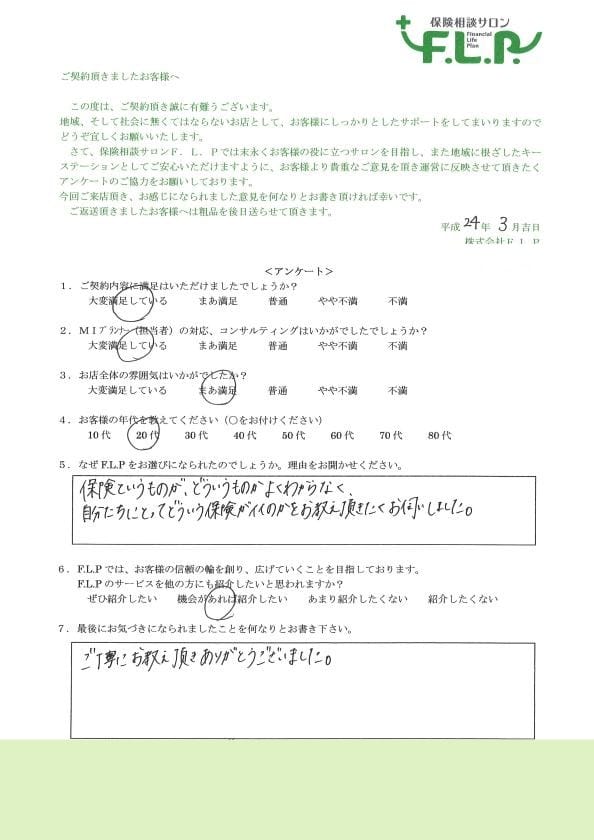 保険相談サロン
Financial
Life
Plan
F.L.P.
ご契約頂きましたお客様へ
この度は、ご契約頂き誠に有難うございます。
地域、そして社会に無くてはならないお店として、お客様にしっかりとしたサポートをしてまいりますので
どうぞ宜しくお願いいたします。
さて、保険相談サロンF．L．Pでは末永くお客様の役に立つサロンを目指し、また地域に根ざしたキー
ステーションとしてご安心いただけますように、お客様より貴重なご意見を頂き運営に反映させて頂きたく
アンケートのご協力をお願いしております。
今回ご来店頂き、お感じになられました意見を何なりとお書き頂ければ幸いです。
ご返送頂きましたお客様へは粗品を後日送らせて頂きます。
平成 24年 3月吉日
株式会社F．L．P
＜アンケート＞
1．ご契約内容に満足はいただけましたでしょうか？
大変満足している まあ満足 普通 やや不満 不満
2．MIプランナー（担当者）の対応、コンサルティングはいかがでしたでしょうか？
大変満足している まあ満足 普通 やや不満 不満
3．お店全体の雰囲気はいかがでしたか？
大変満足している まあ満足 普通 やや不満 不満
4．お客様の年代を教えてください（○をお付けください）
10代 20代 30代 40代 50代 60代 70代 80代
5．なぜF.L.Pをお選びになられたのでしょうか。理由をお聞かせください。
保険というものが、どういうものかよくわからなく、
自分たちにとってどういう保険がイイのかをお教え頂きたくお伺いしました。
6．F.L.Pでは、お客様の信頼の輪を創り、広げていくことを目指しております。
F.L.Pのサービスを他の方にも紹介したいと思われますか？
ぜひ紹介したい 機会があれば紹介したい あまり紹介したくない 紹介したくない
7．最後にお気づきになられましたことを何なりとお書き下さい。
ご丁寧にお教え頂きありがとうございました。